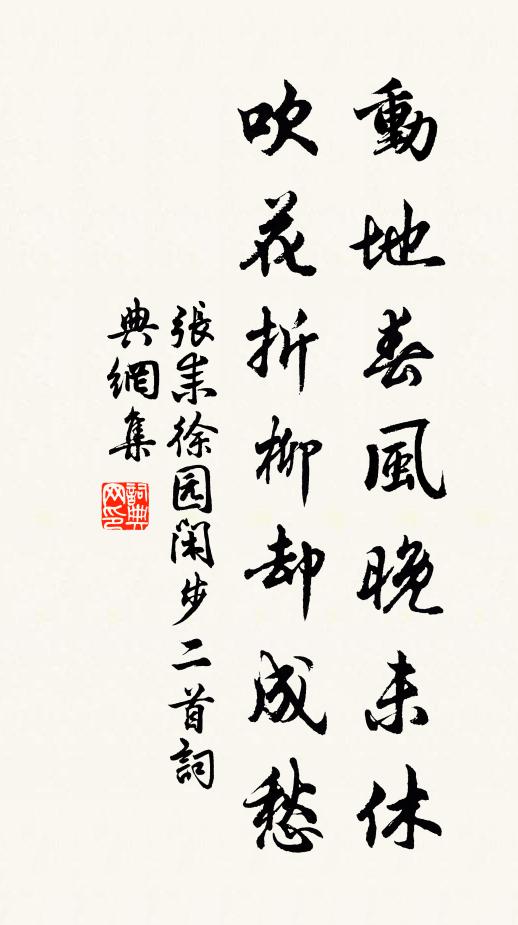 動地春風晚未休
吹花折柳却成愁
張耒徐园閑步二首詞
典網集
詞典
网印